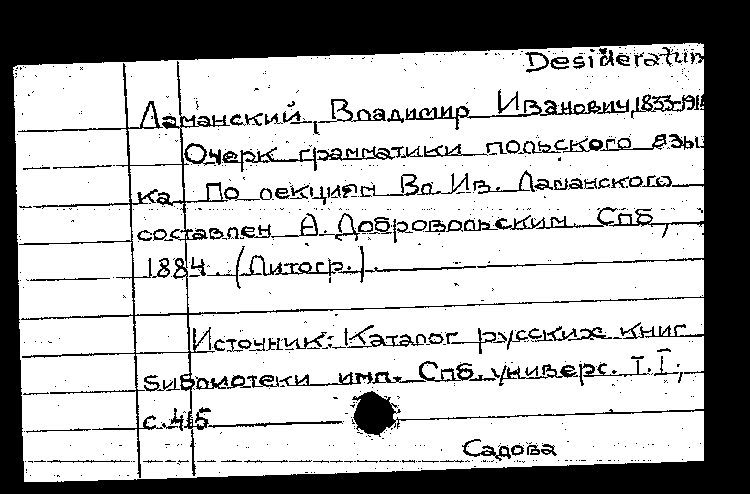 Desideratum
Ламанский, Владимир Иванович, 1833-191
Очерк грамматики польского язы
ка По лекциям Вл. Ив. Ламанского
составлен А. Добровольским Спб,
1884. (Литогр.).
Источник: Каталог русских книг
библиотеки имп. Спб. универс. Т. I,
с. 415
Садова